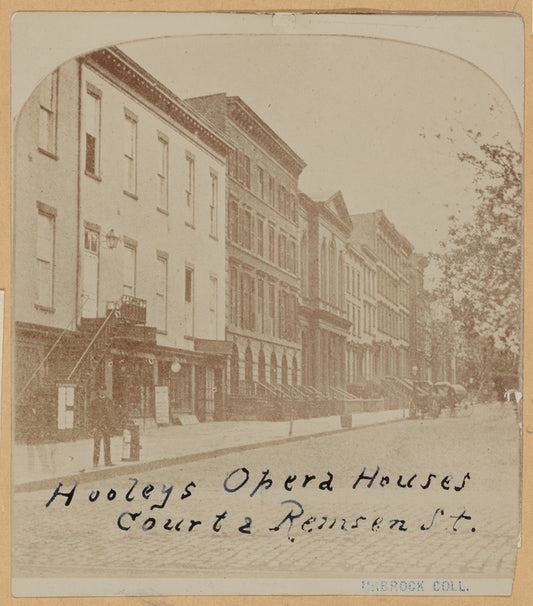 Hooleys Opera Houses
Court & Remsen St.
COLL.